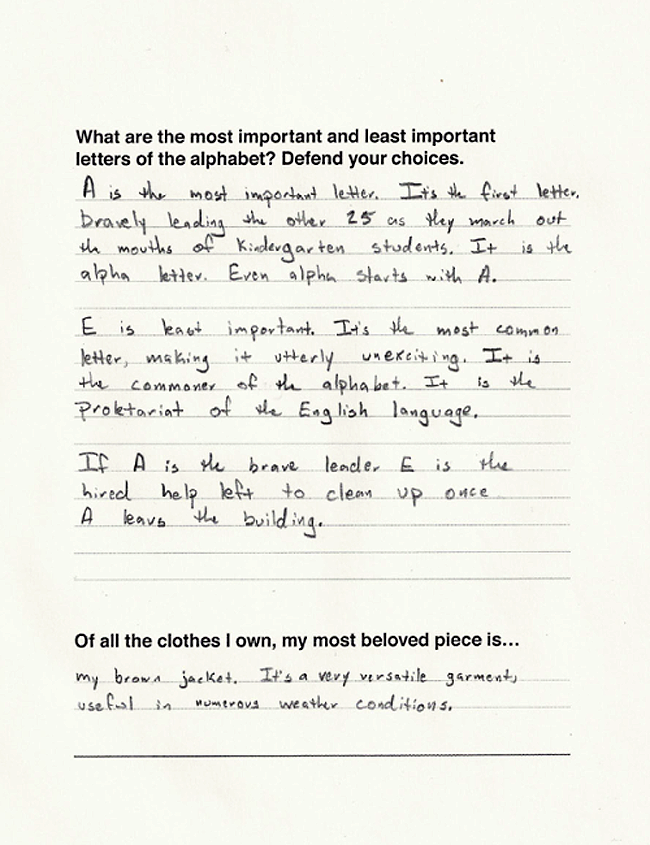 What are the most important and least important
letters of the alphabet? Defend your choices.
A is the most important letter. It's the first letter,
bravely leading the other 25 as they march out
the mouths of Kindergarten students. It is the
alpha letter. Even alpha starts with A.
E is least important. It's the most common
letter, making it utterly unexciting. It is
the commoner of the alphabet. It is the
Proletariat of the English language.
If A is the brave leader E is the
hired help left to clean up once
A leavs the building.
Of all the clothes I own, my most beloved piece is...
my brown jacket. It's a very versatile garment,
useful in numerous weather conditions.